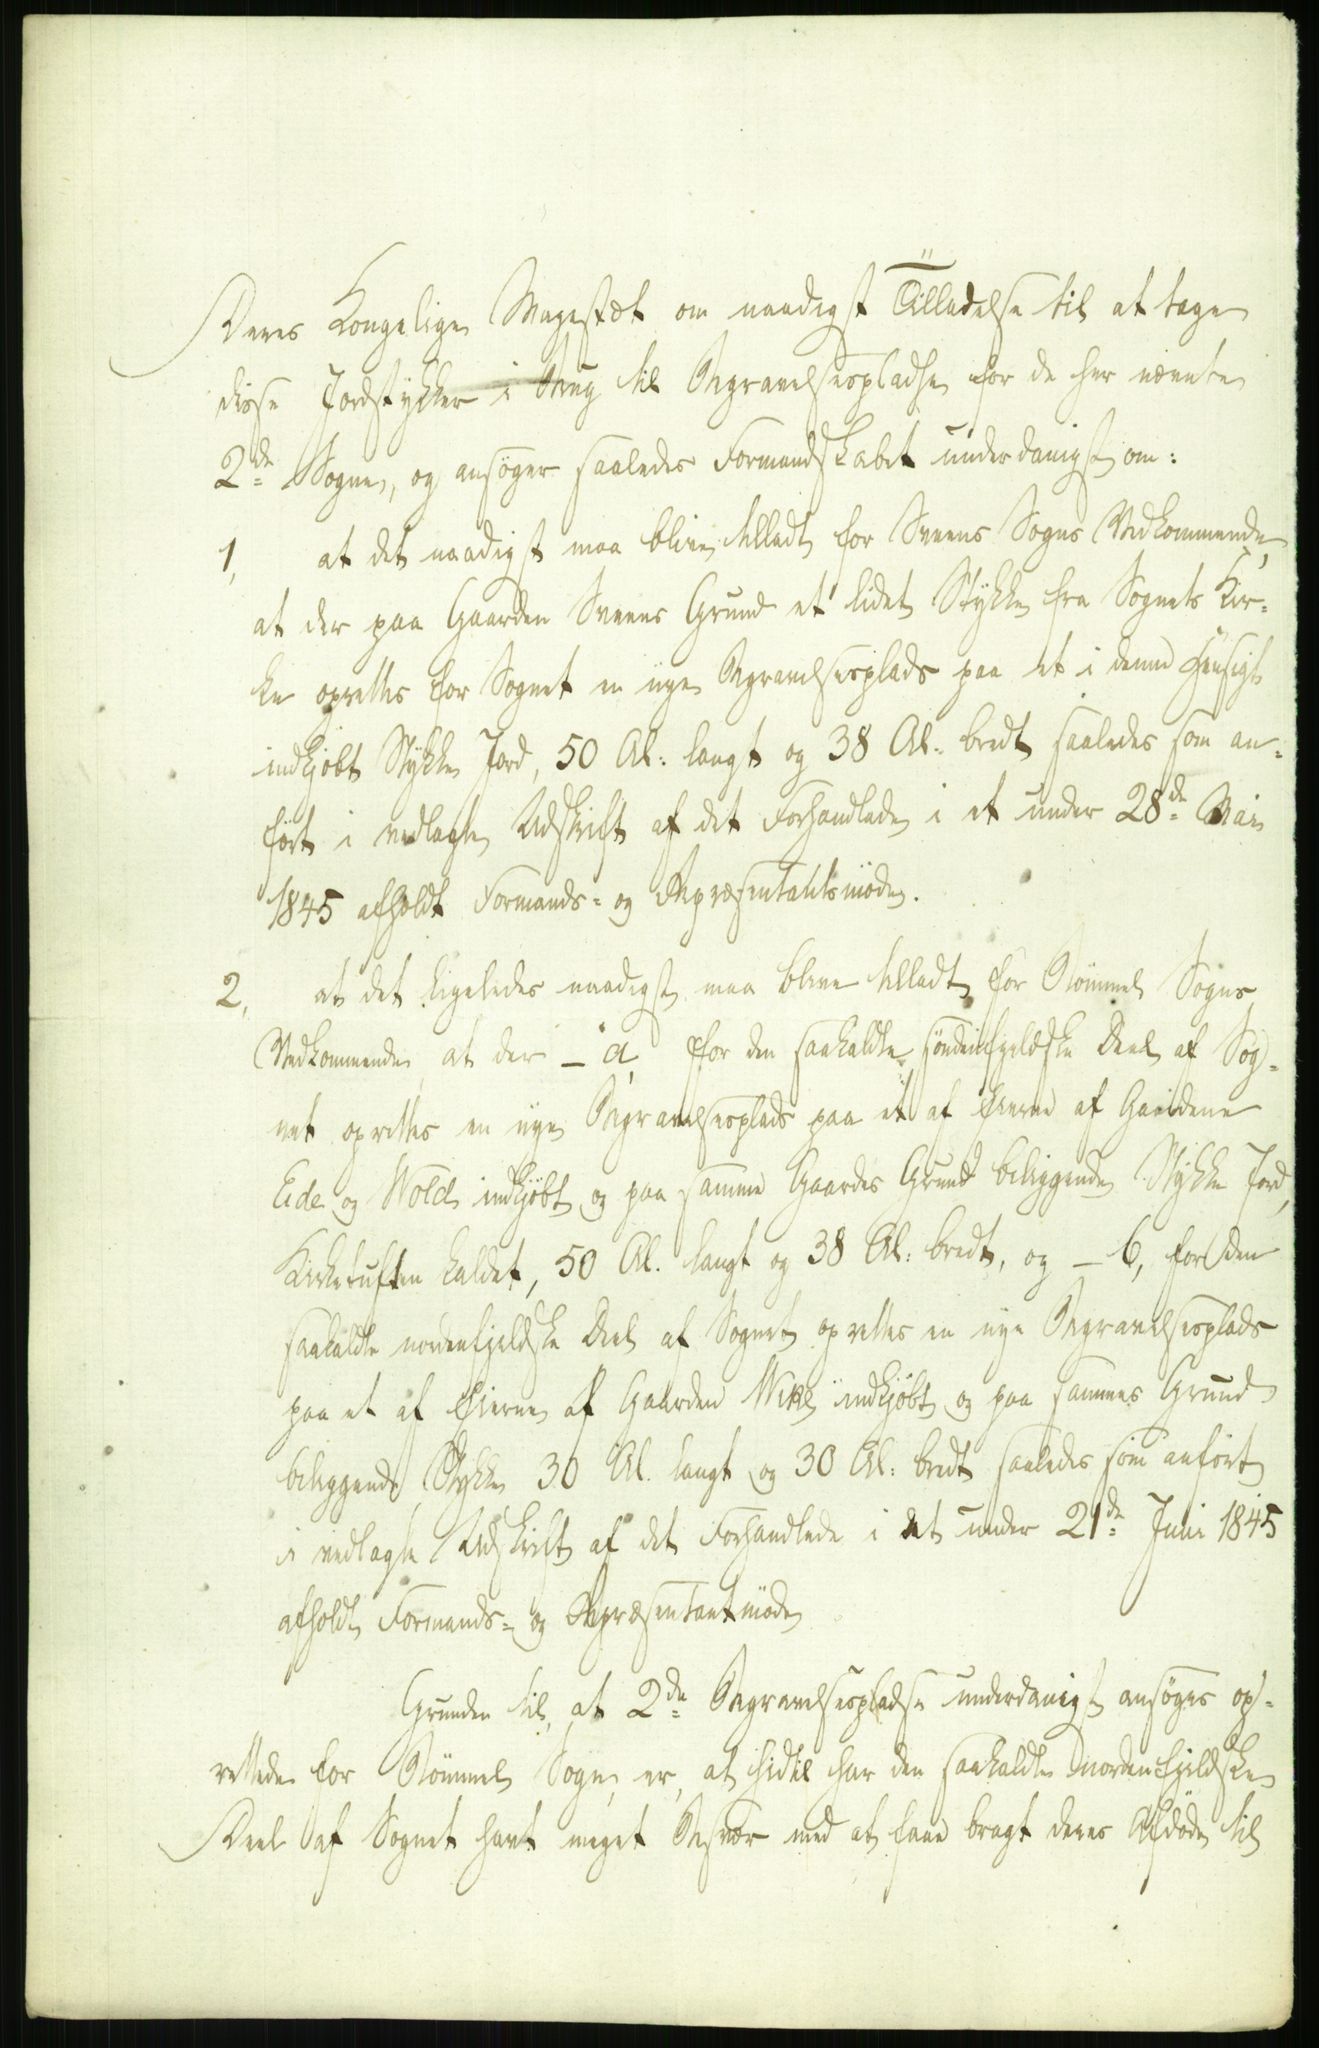 Deres Kongelige Majestæt om naadigst Tilladelse til at tage
disse Jordstykker i Brug til Begravelsespladse for de her nævnte
2de Sogne, og ansøger saaledes Formandskabet underdanigst om:
1, at det naadigst maa blive tilladt for Sveens Sogns Vedkommende,
at der paa Gaarden Sveens Grund et lidet Stykke fra Sognets Kir-
ke oprettes for Sognet en nye Begravelsesplads paa et i denne Hensigt
indkjøbt Stykke Jord, 50 Al: langt og 38 Al: bredt saaledes som an-
ført i vedlagte Udskrift af det Forhandlede i et under 28de Mai
1845 afholdt Formands- og Repræsentantsmøde.
2, at det ligeledes naadigst maa blive tilladt for Sogns
Vedkommende at der - a, for den saakaldte søndenfjeldske Deel af Sog-
net oprettes en nye Begravelsesplads paa et af Eierne af Gaardene
Eide og Wold indkjøbt og paa samme Gaardes Grund beliggende Stykke Jord,
Kirketuften kaldet, 50 Al. langt og 38 Al: bredt, og - b, for den
saakaldte nordenfjeldske Deel af Sognet oprettes en nye Begravelsesplads
paa et af Eierne af Gaarden indkjøbt og paa sammes Grund
beliggende Stykke 30 Al. langt og 30 Al: bredt saaledes som anført
i vedlagte Udskrift af det Forhandlede i det under 21de Juni 1845
afholdte Formands- og Repræsentantmøde
Grunden til, at 2de Begravelsespladse underdanigst ansøges op-
rettede for Sogn, er, at hidtil har den saakaldte nordenfjeldske
Deel af Sognet havt meget Besvær med at faae bragt deres Afdøde til